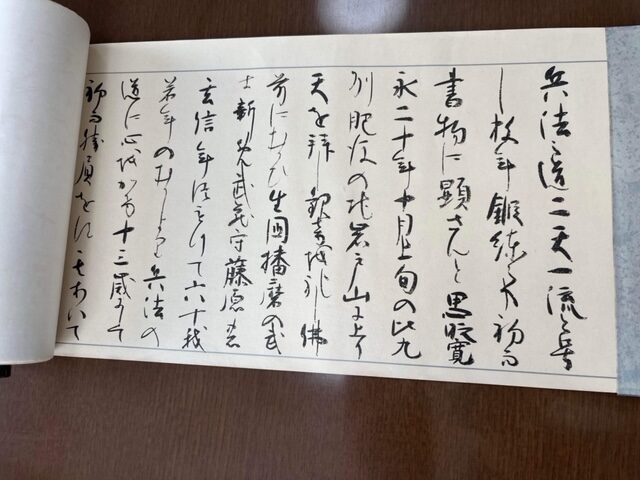 兵法之道二天一流と号
し数年鍛練之事初而
書物に顕さんと思時寛
永二十年十月上旬の比九
州肥後の地岩戸山に上り
天を拝し観音を礼し佛
前にむかひ生國播磨の武
士新めん武蔵守藤原の
玄信年つもりて六十我
若年のむかしより兵法の
道に心をかけ十三歳にして
初而勝負をす其あいて